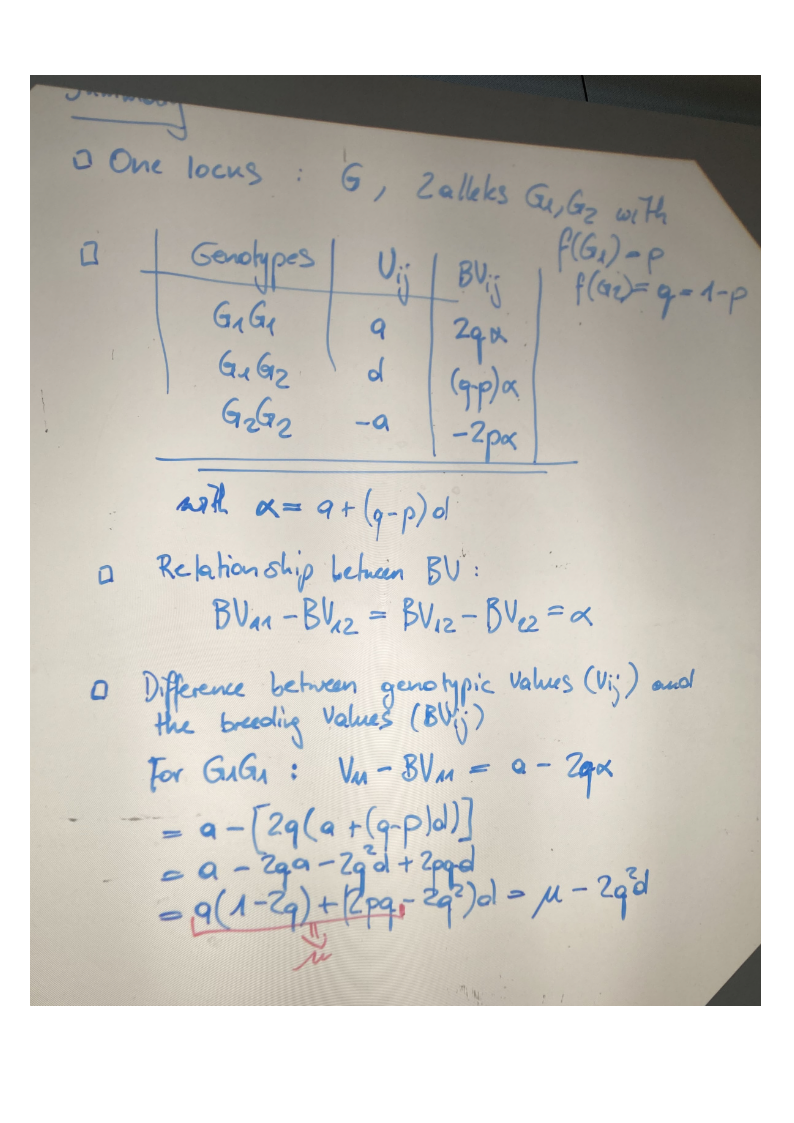 Summary
□ One locus : G, 2 alleles G1, G2 with
f(G1) = p
f(G2) = q = 1-p
□ Genotypes | Vij | BVij
G1G1 | a | 2qα
G1G2 | d | (q-p)α
G2G2 | -a | -2pα
with α = a + (q-p)d
□ Relationship between BV :
BV11 - BV12 = BV12 - BV22 = α
□ Difference between genotypic values (Vij) and
the breeding values (BVij)
For G1G1 : V11 - BV11 = a - 2qα
= a - [2q(a + (q-p)d)]
= a - 2qa - 2q²d + 2pqd
= a(1-2q) + (2pq - 2q²)d = μ - 2q²d
μ